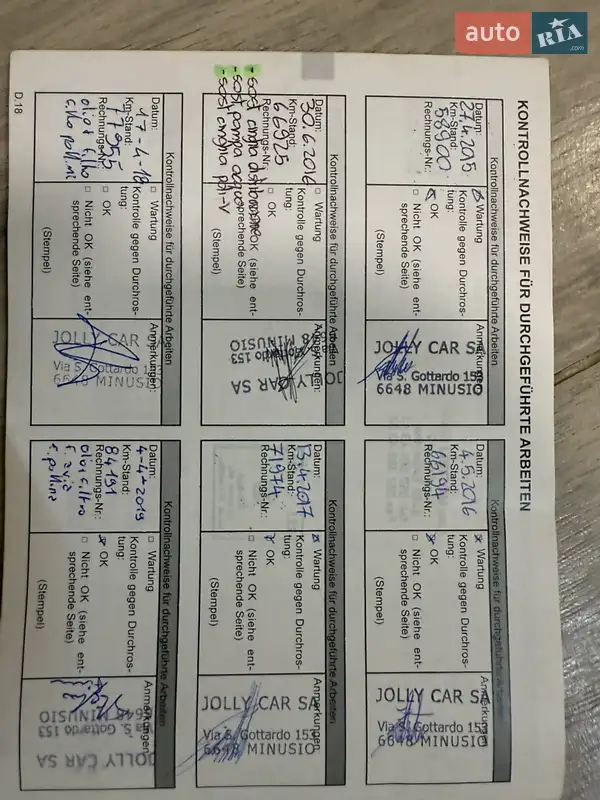 auto RIA .com
KONTROLLNACHWEISE FÜR DURCHGEFÜHRTE ARBEITEN
Kontrollnachweise für durchgeführte Arbeiten
Datum:
27.4.2015
Km-Stand:
58900
Rechnungs-Nr.:
Wartung
Kontrolle gegen Durchros-
tung:
OK
Nicht OK (siehe ent-
sprechende Seite)
(Stempel)
Anmerkungen:
JOLLY CAR SA
Via S. Gottardo 153
6648 MINUSIO
Kontrollnachweise für durchgeführte Arbeiten
Datum:
4.5.2016
Km-Stand:
66194
Rechnungs-Nr.:
Wartung
Kontrolle gegen Durchros-
tung:
OK
Nicht OK (siehe ent-
sprechende Seite)
(Stempel)
Anmerkungen:
JOLLY CAR SA
Via S. Gottardo 153
6648 MINUSIO
Kontrollnachweise für durchgeführte Arbeiten
Datum:
30.6.2016
Km-Stand:
66925
Rechnungs-Nr.:
- sost cinghia distribuzione
- sost pompa acqua
- sost cinghia poli-V
Wartung
Kontrolle gegen Durchros-
OK
OK (siehe ent-
sprechende Seite)
(Stempel)
Anmerkungen:
JOLLY CAR SA
Gottardo 153
MINUSIO
Kontrollnachweise für durchgeführte Arbeiten
Datum:
13.4.2017
Km-Stand:
71974
Rechnungs-Nr.:
Wartung
Kontrolle gegen Durchros-
tung:
OK
Nicht OK (siehe ent-
sprechende Seite)
(Stempel)
Anmerkungen:
JOLLY CAR SA
Via S. Gottardo 153
6648 MINUSIO
Kontrollnachweise für durchgeführte Arbeiten
Datum:
17-4-18
Km-Stand:
77955
Rechnungs-Nr.:
Wartung
Kontrolle gegen Durchros-
tung:
OK
Nicht OK (siehe ent-
sprechende Seite)
(Stempel)
Anmerkungen:
JOLLY CAR SA
Via S. Gottardo
6648 MINUSIO
Kontrollnachweise für durchgeführte Arbeiten
Datum:
4-4-2019
Km-Stand:
84191
Rechnungs-Nr.:
Wartung
Kontrolle gegen Durchros-
tung:
OK
Nicht OK (siehe ent-
sprechende Seite)
(Stempel)
Anmerkungen:
JOLLY CAR SA
Via S. Gottardo 153
6648 MINUSIO
D.18